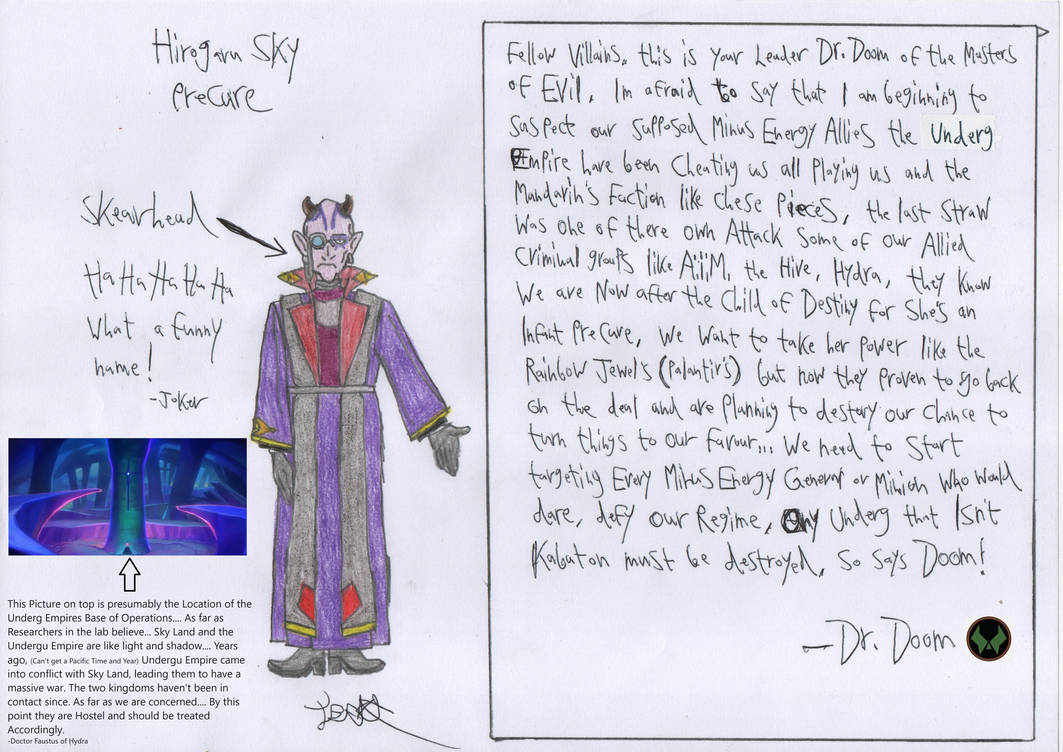 Hirogaru Sky
Precure
Skearhead
Ha Ha Ha Ha Ha
What a funny
name!
-Joker
This Picture on top is presumably the Location of the
Underg Empires Base of Operations.... As far as
Researchers in the lab believe... Sky Land and the
Undergu Empire are like light and shadow.... Years
ago, (Can't get a Pacific Time and Year) Undergu Empire came
into conflict with Sky Land, leading them to have a
massive war. The two kingdoms haven't been in
contact since. As far as we are concerned.... By this
point they are Hostel and should be treated
Accordingly.
-Doctor Faustus of Hydra
Fellow Villains. this is your Leader Dr. Doom of the Masters
of Evil, I'm afraid to say that I am beginning to
suspect our supposed Minus Energy Allies the Underg
Empire have been cheating us all Playing us and the
Mandarin's Faction like chese Pieces, the last straw
was one of there own Attack some of our Allied
Criminal groups like A.i.M, the Hive, Hydra, they know
we are Now after the Child of Destiny for She's an
Infant Precure, we want to take her power like the
Rainbow Jewel's (Palantir's) but now they proven to go back
on the deal and are Planning to destory our chance to
turn things to our favour... We need to Start
targeting Every Minus Energy General or Minion who would
dare, defy our Regime, Any Underg that Isn't
Kabaton must be destroyed, So says Doom!
-Dr. Doom